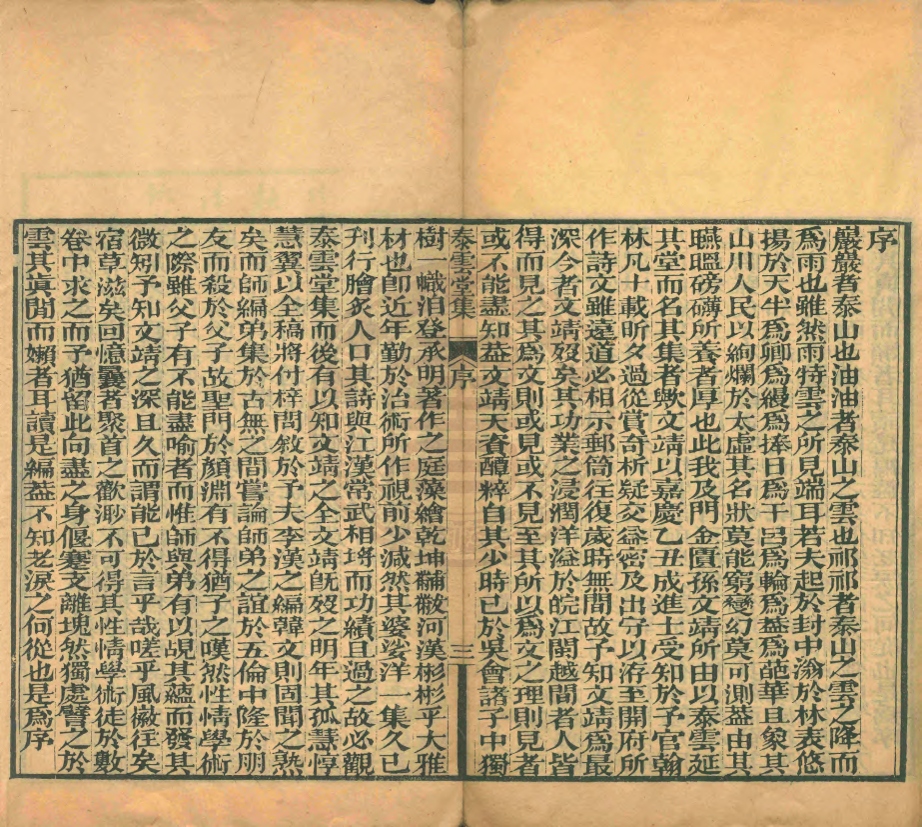 序
巖巖者泰山也油油者泰山之雲也祁祁者泰山之雲之降而
爲雨也雖然雨特雲之所見端耳若夫起於封中滃於林表悠
揚於天半爲卿爲縵爲捧日爲干呂爲輪爲葢爲葩華且象其
山川人民以絢爛於太虛其名狀莫能窮變幻莫可測葢由其
醞磅礴所養者厚也此我及門金匱孫文靖所由以泰雲延
其堂而名其集者歟文靖以嘉慶乙丑成進士受知於予官翰
林凡十載昕夕過從賞奇析疑交益密及出守以洊至開府所
作詩文雖遠道必相示郵筒往復歲時無間故予知文靖爲最
深今者文靖歿矣其功業之浸潤洋溢於皖江閩越閒者人皆
得而見之其爲文則或見或不見至其所以爲文之理則見者
或不能盡知葢文靖天資醇粹自其少時已於吳會諸子中獨
泰雲堂集 序 三
樹一幟洎登承明著作之庭藻繪乾坤黼黻河漢彬彬乎大雅
材也卽近年勤於治術所作視前少減然其婆娑洋一集久已
刊行膾炙人口其詩與江漢常武相埒而功績且過之故必觀
泰雲堂集而後有以知文靖之全文靖旣歿之明年其孤慧惇
慧翼以全稿將付梓問敘於予夫李漢之編韓文則固聞之熟
矣而師編弟集於古無之間嘗論師弟之誼於五倫中隆於朋
友而殺於父子故聖門於顏淵有不得猶子之嘆然性情學術
之際雖父子有不能盡喻者而惟師與弟有以覘其蘊而發其
微矧予知文靖之深且久而謂能已於言乎哉嗟乎風徽往矣
宿草滋矣回憶曩者聚首之歡渺不可得其性情學術徒於數
卷中求之而予猶留此向盡之身偃蹇支離塊然獨處譬之於
雲其眞閒而嬾者耳讀是編葢不知老淚之何從也是爲序